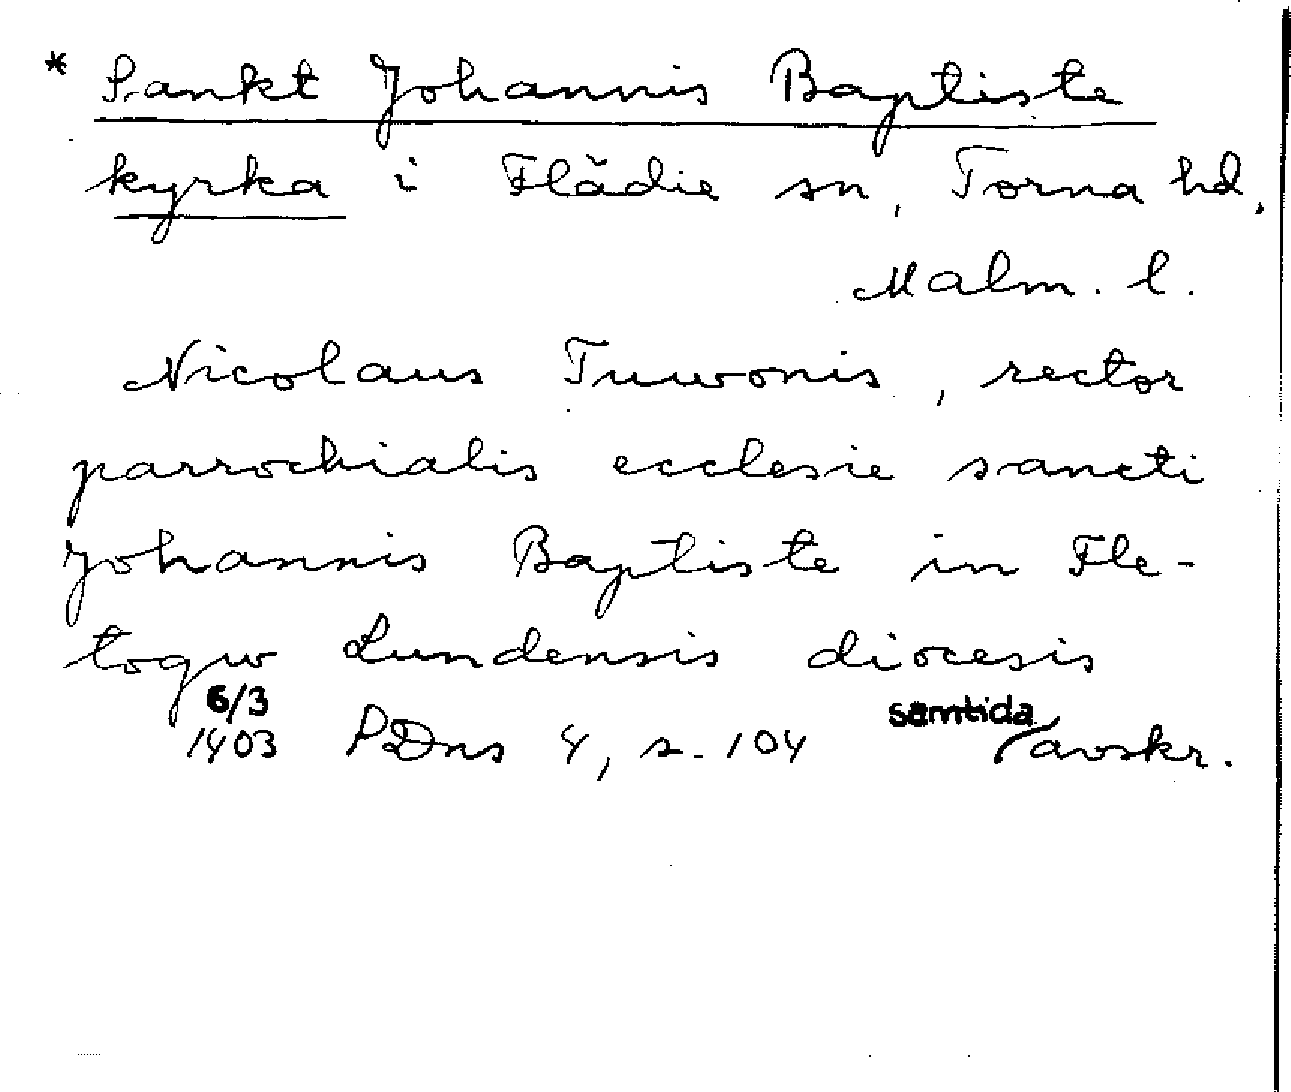 * Sankt Johannis Baptiste
kyrka i Flädie sn, Torna hd,
Malm. l.
Nicolaus Tuwonis, rector
parrochialis ecclesie sancti
Johannis Baptiste in Fle-
togw Lundensis diocesis
6/3 samtida
1403 PDns 4, s. 104 /avskr.